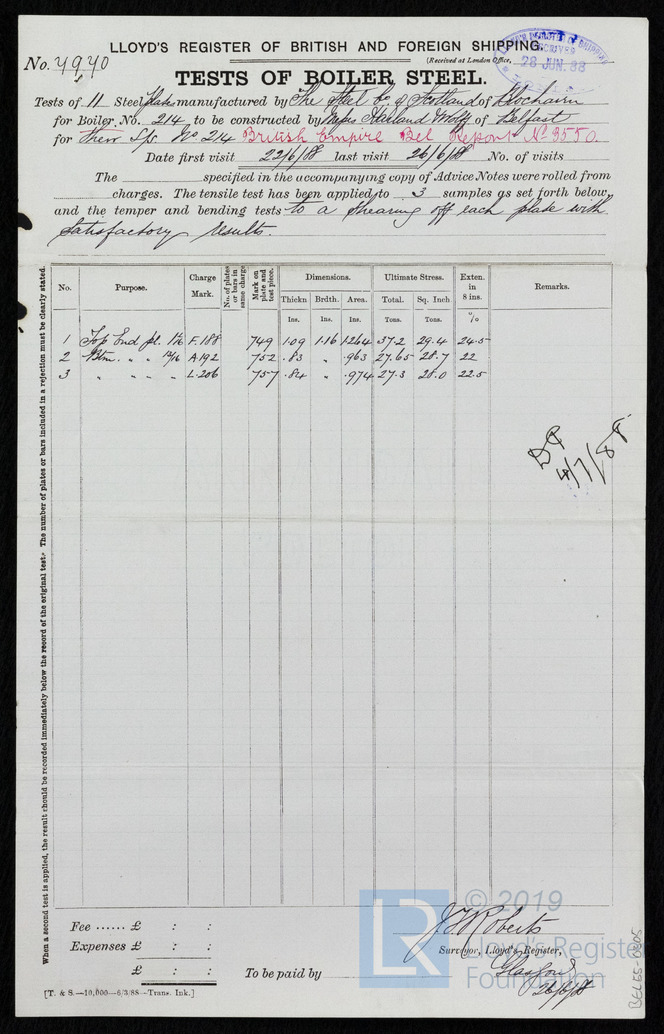 LLOYD'S REGISTER OF BRITISH AND FOREIGN SHIPPING.
No. 4940
(Received at London Office,
28 JUN. 88
TESTS OF BOILER STEEL.
Tests of 11 Steel Plates manufactured by The Steel Co of Scotland of Blochairn
for Boiler. No. 214 to be constructed by Messrs Harland & Wolff of Belfast
for Their S/s. No 214 British Empire Bel Report No 3550.
Date first visit 22/6/88 last visit 26/6/88 No. of visits
The specified in the accompanying copy of Advice Notes were rolled from
charges. The tensile test has been applied to 3 samples as set forth below,
and the temper and bending tests to a shearing off each plate with
satisfactory results.
When a second test is applied, the result should be recorded immediately below the record of the original test. The number of plates or bars included in a rejection must be clearly stated.
No. Purpose. Charge Mark. No. of plates or bars in same charge Mark on plate and test piece. Dimensions. Ultimate Stress. Exten. in 8 ins. Remarks.
Thickn Brdth. Area. Total. Sq. Inch
Ins. Ins. Ins. Tons. Tons. %
1 Top End pl. 1 1/16 F.188 749 1.09 1.16 1.264 37.2 29.4 24.5
2 Btm. " " 13/16 A.192 752 .83 " .963 27.65 28.7 22
3 " " " " L.206 757 .84 " .974 27.3 28.0 22.5
4/7/88
Fee ...... £ : :
Expenses £ : :
£ : :
To be paid by
J W Roberts
Surveyor, Lloyd's Register,
Glasgow
26/6/88
[T. & S.—10,000—6/3/88—Trans. Ink.]
LR
© 2019
Lloyd's Register
Foundation